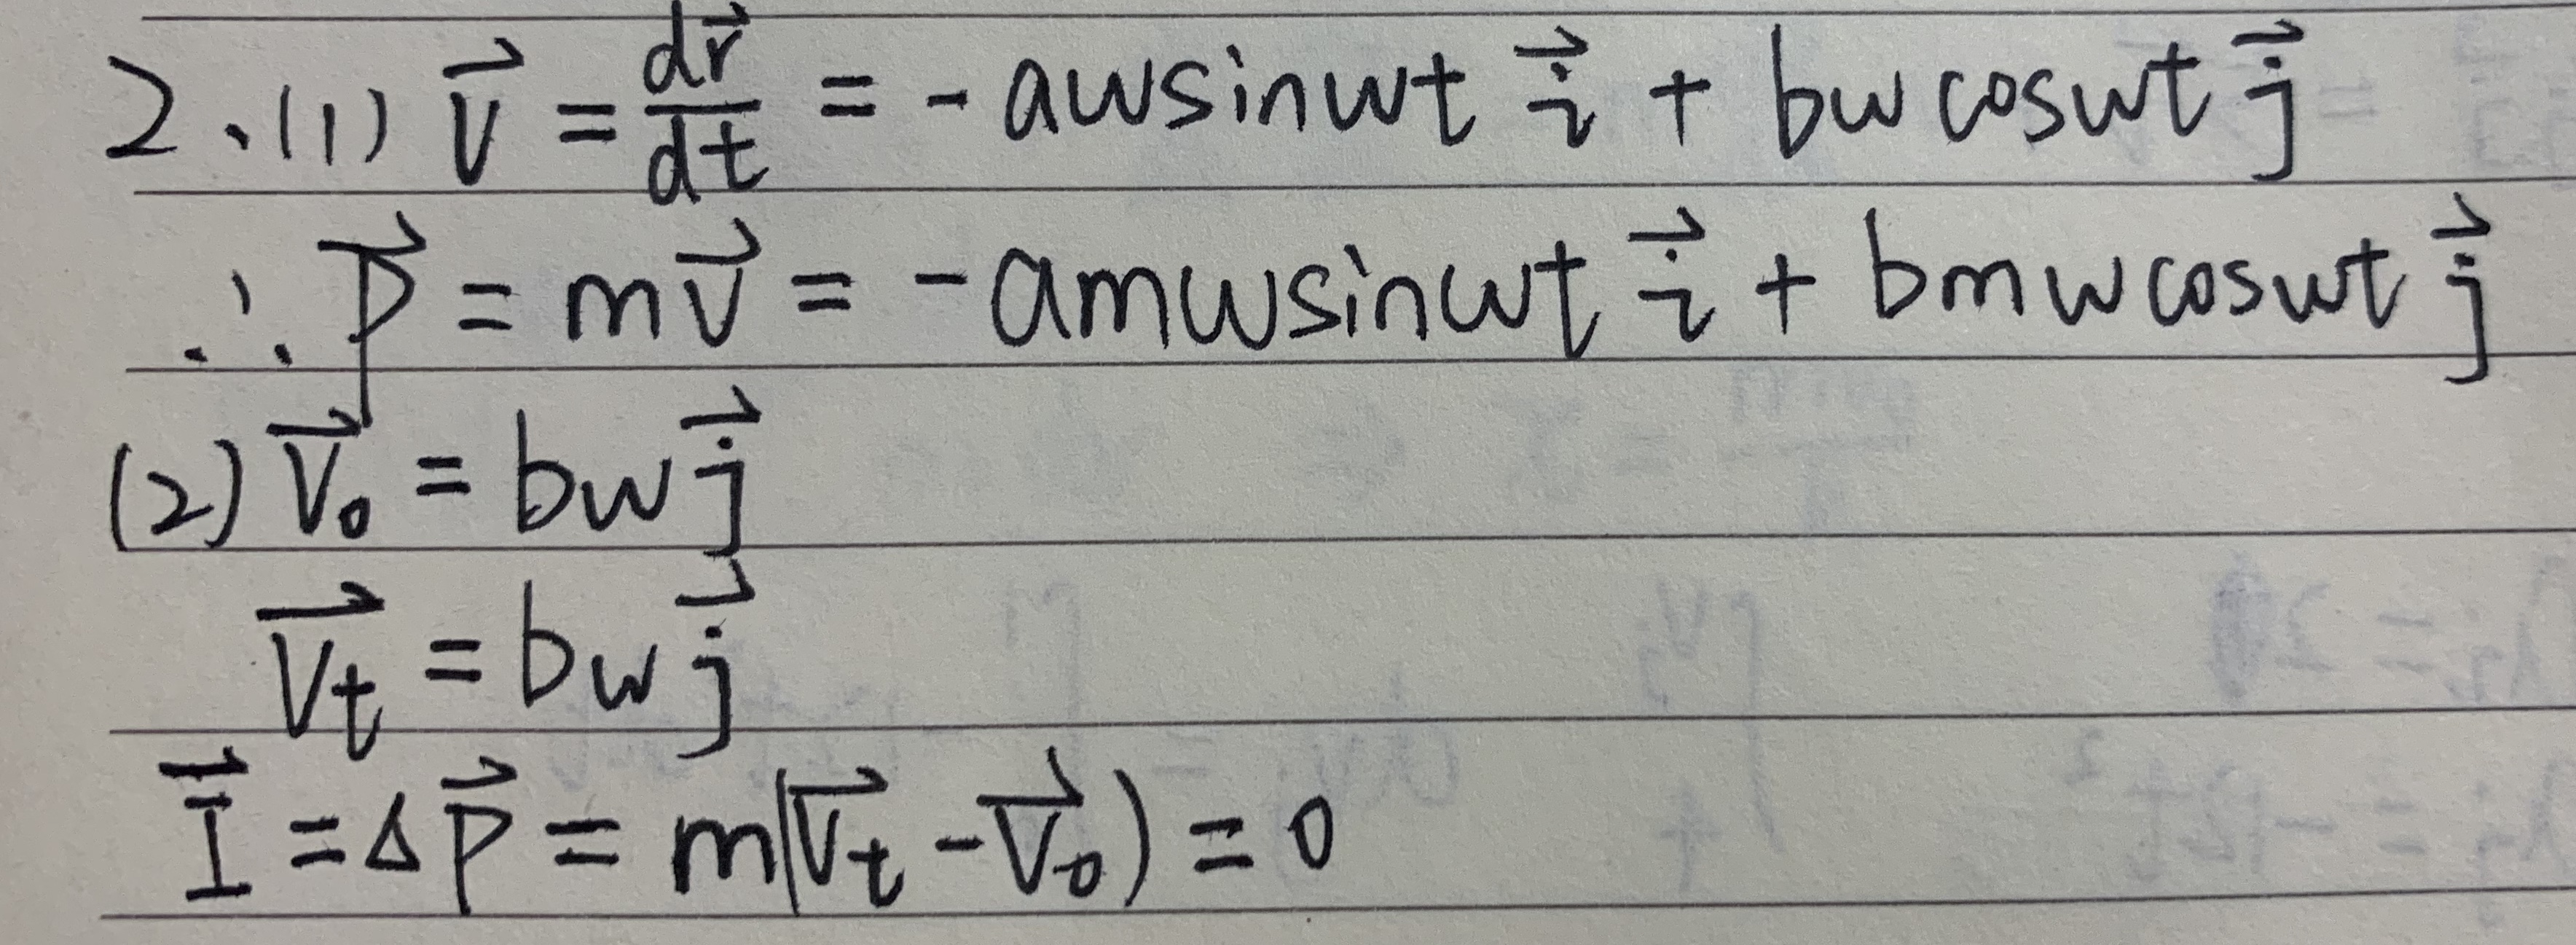 2、(1) $\vec{V} = \frac{d\vec{r}}{dt} = -aw\sin wt\,\vec{i} + bw\cos wt\,\vec{j}$
∴ $\vec{P} = m\vec{V} = -amw\sin wt\,\vec{i} + bmw\cos wt\,\vec{j}$
(2) $\vec{V_0} = bw\vec{j}$
$\vec{V_t} = bw\vec{j}$
$\vec{I} = \Delta\vec{P} = m(\vec{V_t} - \vec{V_0}) = 0$